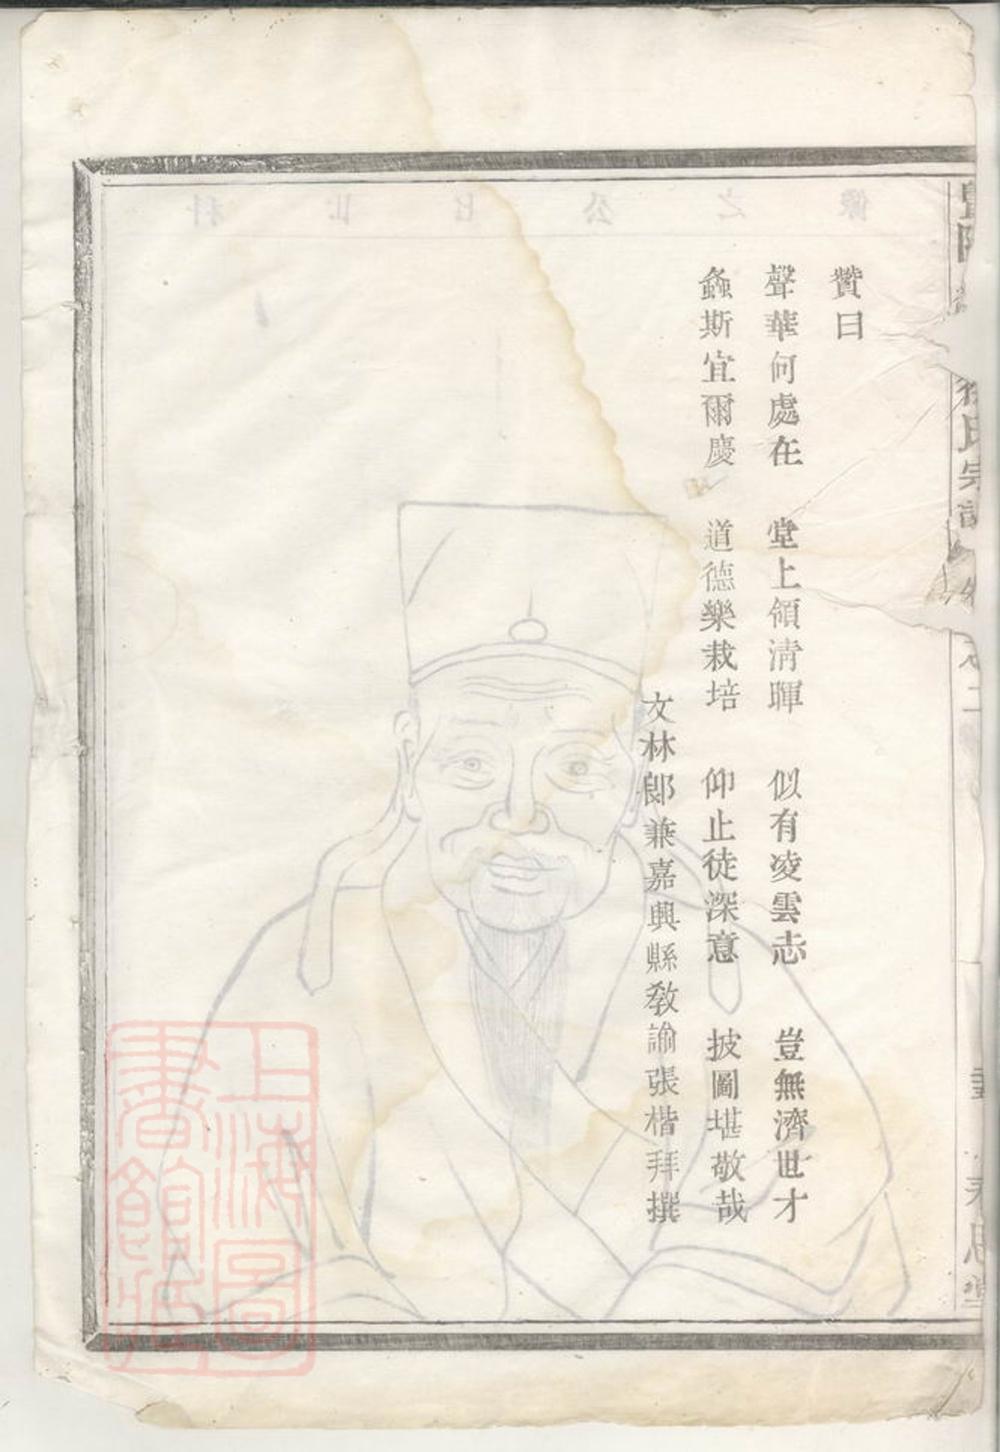 贊曰
聲華何處在 堂上領淸暉 似有凌雲志 豈無濟世才
螽斯宜爾慶 道德樂栽培 仰止徒深意 披圖堪敬哉
文林郎兼嘉興縣敎諭張楷拜撰
氏宗譜
上海圖書館藏